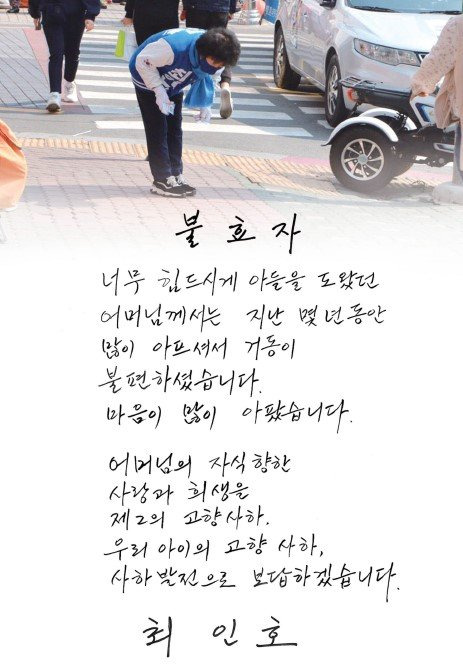 불효자
너무 힘드시게 아들을 도왔던
어머님께서는 지난 몇 년동안
많이 아프셔서 거동이
불편하셨습니다.
마음이 많이 아팠습니다.
어머님의 자식향한
사랑과 희생을
제2의 고향사하,
우리 아이의 고향 사하,
사하발전으로 보답하겠습니다.
최인호